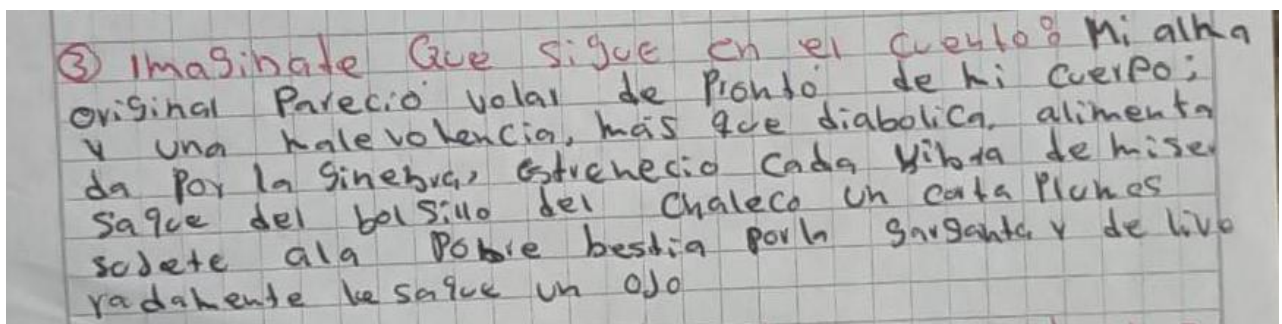 ③ Imaginate Que sigue en el cuento: Mi alma
original Pareció volar de Pronto de mi cuerpo;
y una malevolencia, más que diabolica, alimenta
da por la ginebra, estremecio cada fibra de mi ser
saque del bolsillo del chaleco un corta Plumas
sujete ala pobre bestia por la garganta y de live
radamente le saque un ojo